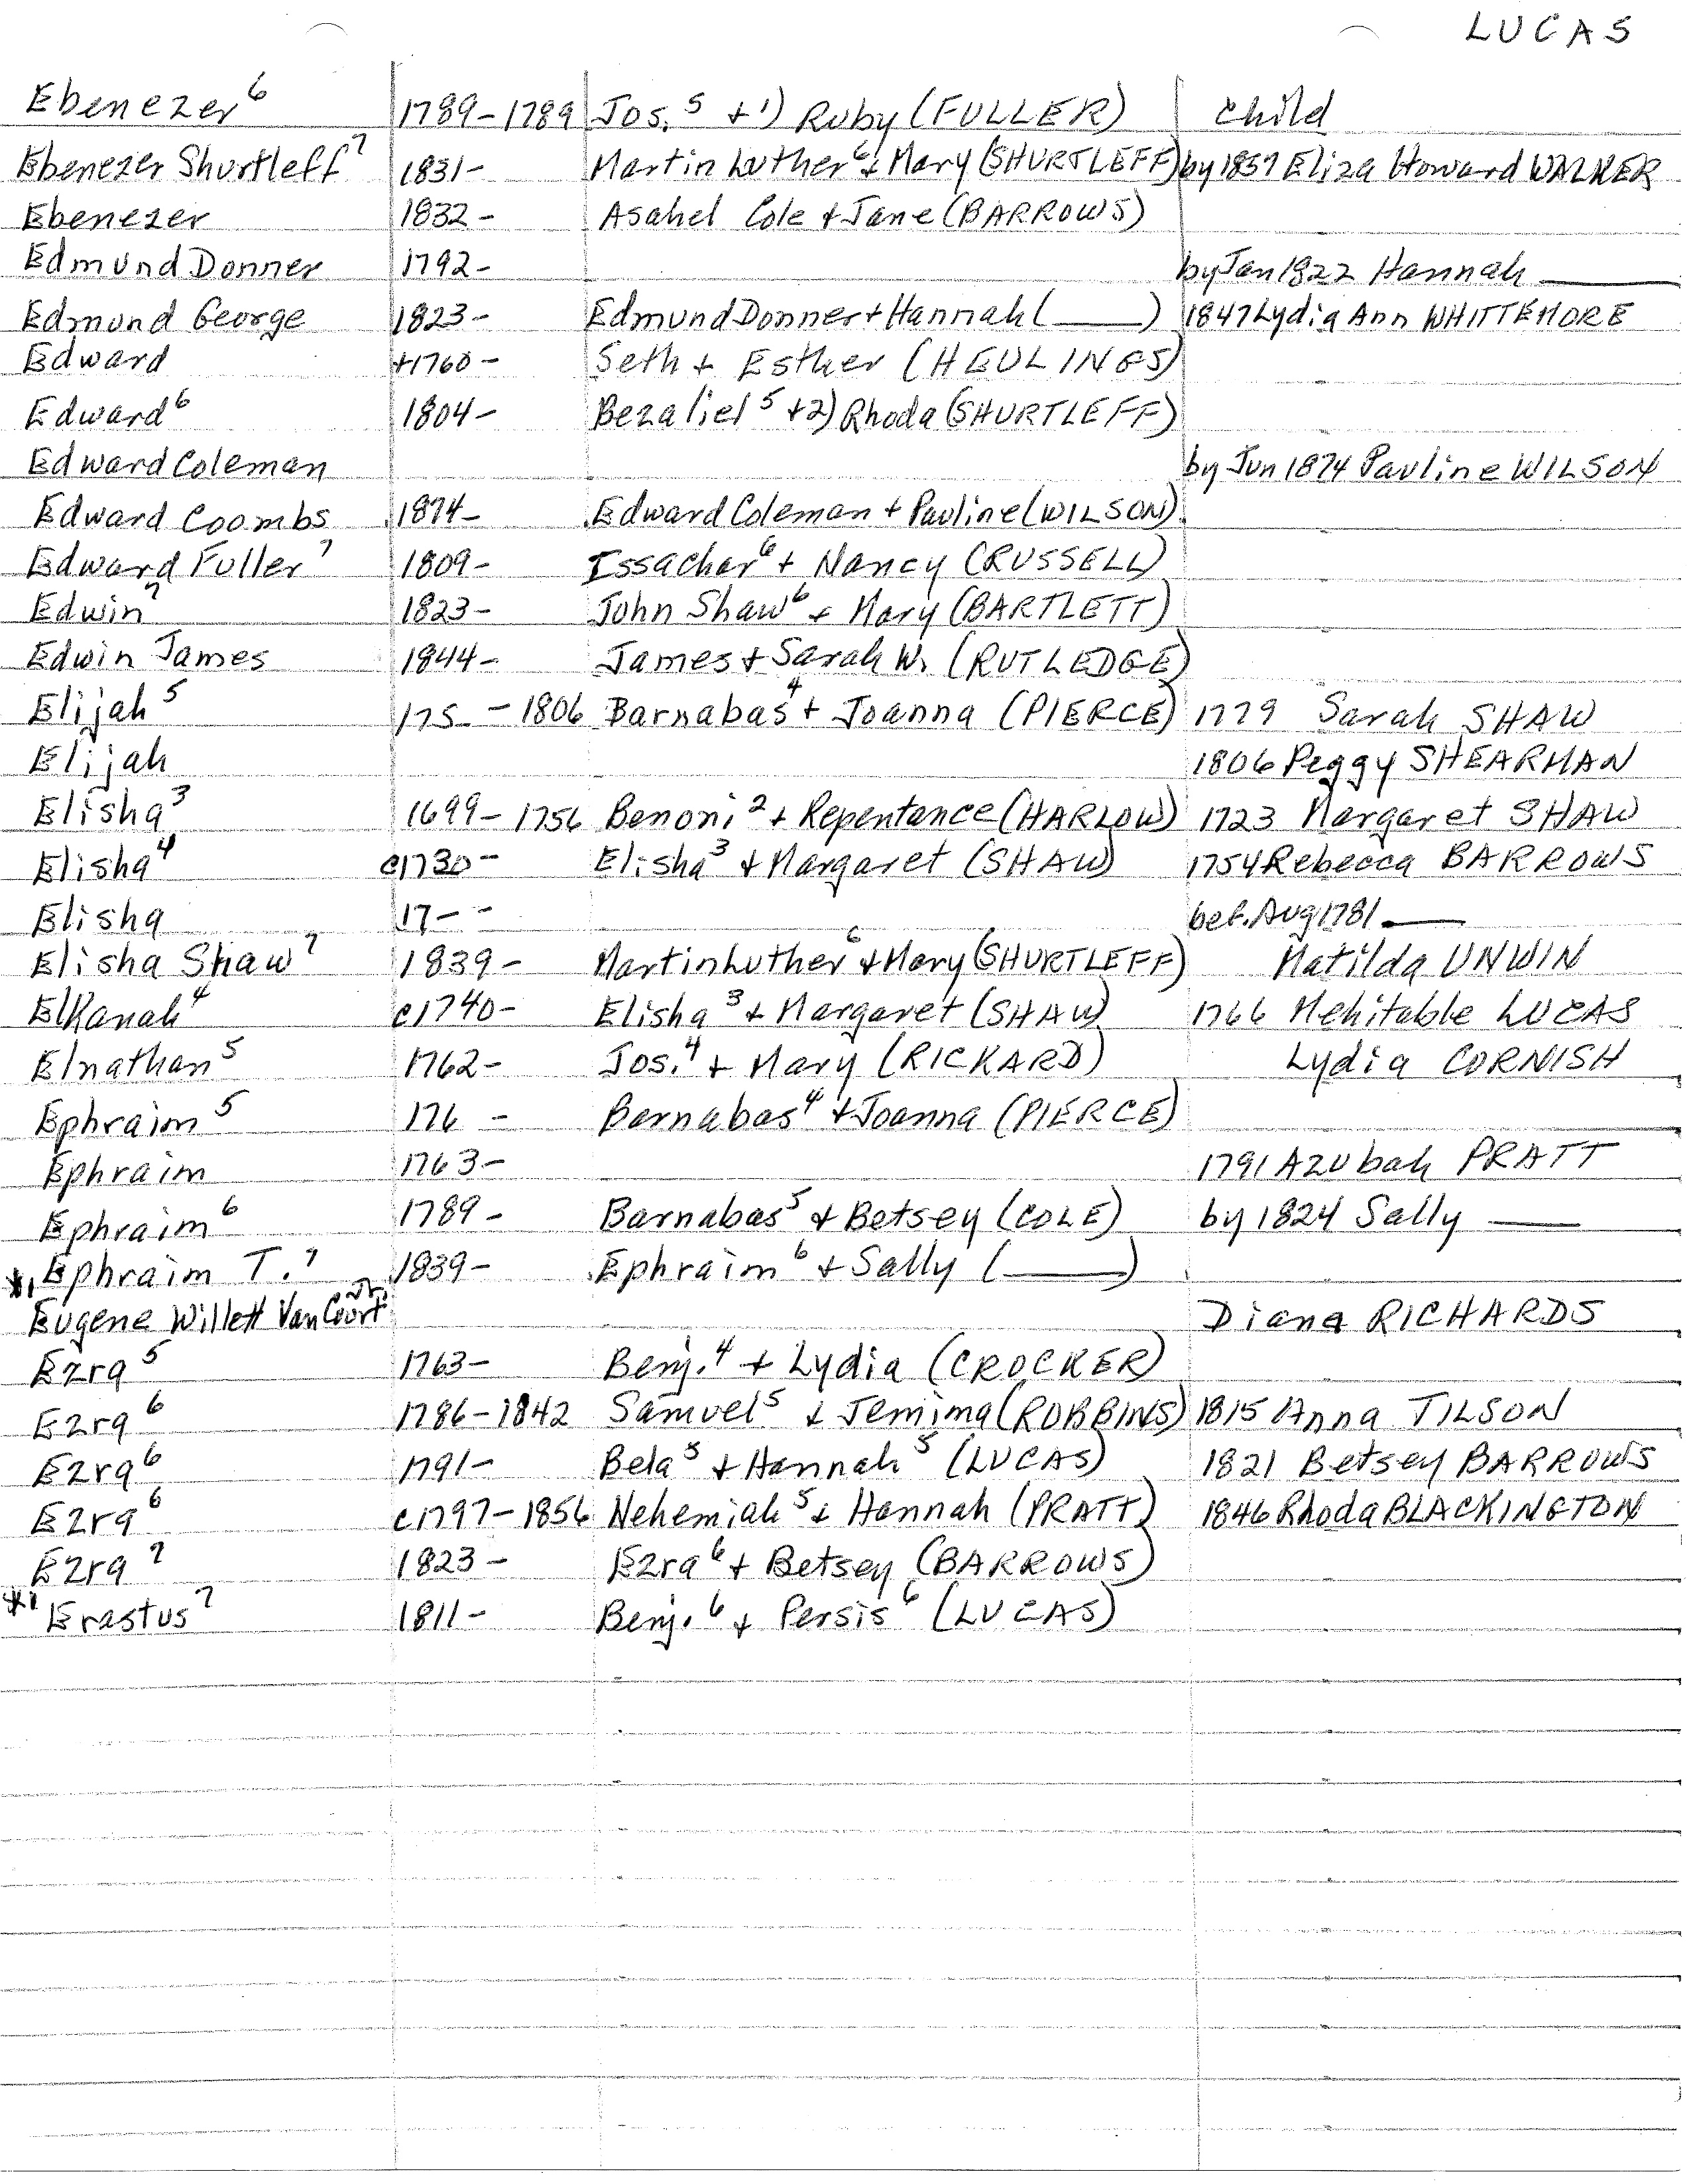 LUCAS
Ebenezer⁶ 1789-1789 Jos.⁵ +1) Ruby (FULLER) child
Ebenezer Shurtleff⁷ 1831- Martin Luther⁶ + Mary (SHURTLEFF) by 1857 Eliza Howard WALKER
Ebenezer 1832- Asahel Cole + Jane (BARROWS)
Edmund Donner 1792- by Jan 1822 Hannah ___
Edmond George 1823- Edmund Donner + Hannah (___) 1847 Lydia Ann WHITTEMORE
Edward +1760- Seth + Esther (HEULINGS)
Edward⁶ 1804- Bezaliel⁵ +2) Rhoda (SHURTLEFF)
Edward Coleman by Jun 1874 Pauline WILSON
Edward Coombs 1874- Edward Coleman + Pauline (WILSON)
Edward Fuller⁷ 1809- Issachar⁶ + Nancy (RUSSELL)
Edwin⁷ 1823- John Shaw⁶ + Mary (BARTLETT)
Edwin James 1844- James + Sarah W. (RUTLEDGE)
Elijah⁵ 175_ - 1806 Barnabas⁴ + Joanna (PIERCE) 1779 Sarah SHAW
Elijah 1806 Peggy SHEARMAN
Elisha³ 1699-1756 Benoni² + Repentance (HARLOW) 1723 Margaret SHAW
Elisha⁴ c1730- Elisha³ + Margaret (SHAW) 1754 Rebecca BARROWS
Elisha 17-- bef. Aug 1781 ___
Elisha Shaw⁷ 1839- Martin Luther⁶ + Mary (SHURTLEFF) Matilda UNWIN
Elkanah⁴ c1740- Elisha³ + Margaret (SHAW) 1766 Mehitable LUCAS
Elnathan⁵ 1762- Jos.⁴ + Mary (RICKARD) Lydia CORNISH
Ephraim⁵ 176 - Barnabas⁴ + Joanna (PIERCE)
Ephraim 1763- 1791 Azubah PRATT
Ephraim⁶ 1789- Barnabas⁵ + Betsey (COLE) by 1824 Sally ___
*1 Ephraim T.⁷ 1839- Ephraim⁶ + Sally (___)
Eugene Willett VanCourt Jr Diana RICHARDS
Ezra⁵ 1763- Benj.⁴ + Lydia (CROCKER)
Ezra⁶ 1786-1842 Samuel⁵ + Jemima (ROBBINS) 1815 Anna TILSON
Ezra⁶ 1791- Bela⁵ + Hannah⁵ (LUCAS) 1821 Betsey BARROWS
Ezra⁶ c1797-1856 Nehemiah⁵ + Hannah (PRATT) 1846 Rhoda BLACKINGTON
Ezra⁷ 1823- Ezra⁶ + Betsey (BARROWS)
*1 Erastus⁷ 1811- Benj.⁶ + Persis⁶ (LUCAS)